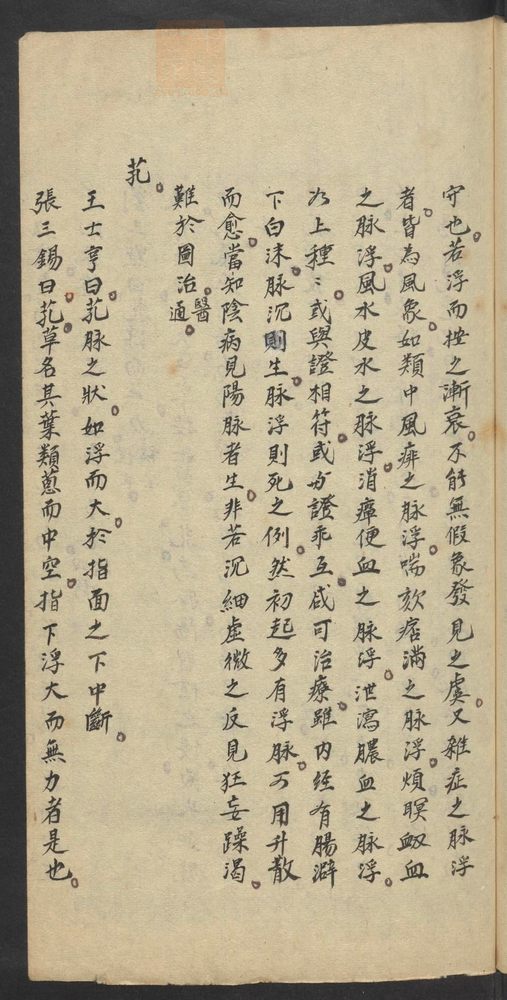 守也。若浮而按之漸衰。不能無假象發見之虞。又雜症之脉浮
者皆為風象。如類中風痱之脉浮。喘欬痞滿之脉浮。煩瞑衂血
之脉浮。風水皮水之脉浮。消癉便血之脉浮。泄瀉膿血之脉浮。
以上種々。或與證相符。或与證乖互。咸可治療。雖内經有腸澼
下白沫。脉沉則生。脉浮則死之例。然初起多有浮脉。可用升散
而愈。當知陰病見陽脉者生。非若沉細虛微之反見狂妄躁渴。
難於圖治。醫通。
芤。
王士亨曰。芤脉之狀。如浮而大。於指面之下中斷。
張三錫曰。芤草名。其葉類蔥而中空。指下浮大而無力者是也。